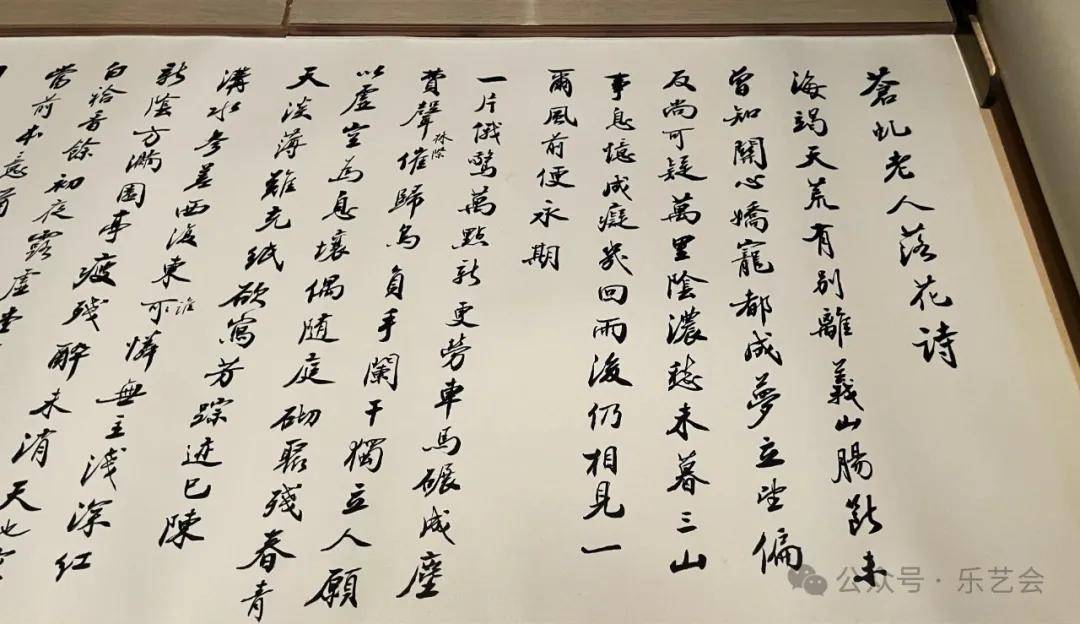 蒼虬老人落花詩
海竭天荒有別離義山腸斷未
曾知關心嬌寵都成夢立望偏
反尚可疑萬里陰濃愁未暮三山
事息憶成癡幾回雨後仍相見一
爾風前便永期
一片俄驚萬點新更勞車馬碾成塵
費聲林際催歸鳥負手闌干獨立人願
以虛空為息壤偶隨庭砌聚殘春青
天淡薄難充紙欲寫芳踪迹已陳
溝水參差西復東可誰憐無主淺深紅
新陰方滿園亭廢殘醉未消天也
白袷香餘初夜露虛堂
當前本意
公众号·乐艺会